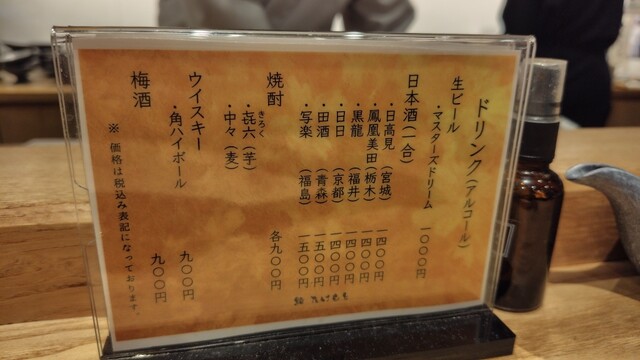 ドリンク(アルコール)
生ビール
・マスターズドリーム 一〇〇〇円
日本酒(一合)
・日高見(宮城) 一四〇〇円
・鳳凰美田(栃木) 一四〇〇円
・黒龍(福井) 一四〇〇円
・日日(京都) 一四〇〇円
・田酒(青森) 一五〇〇円
・写楽(福島) 一五〇〇円
焼酎 各九〇〇円
・㐂六(芋)
きろく
・中々(麦)
ウイスキー
・角ハイボール 九〇〇円
梅酒 九〇〇円
※ 価格は税込み表記になっております。